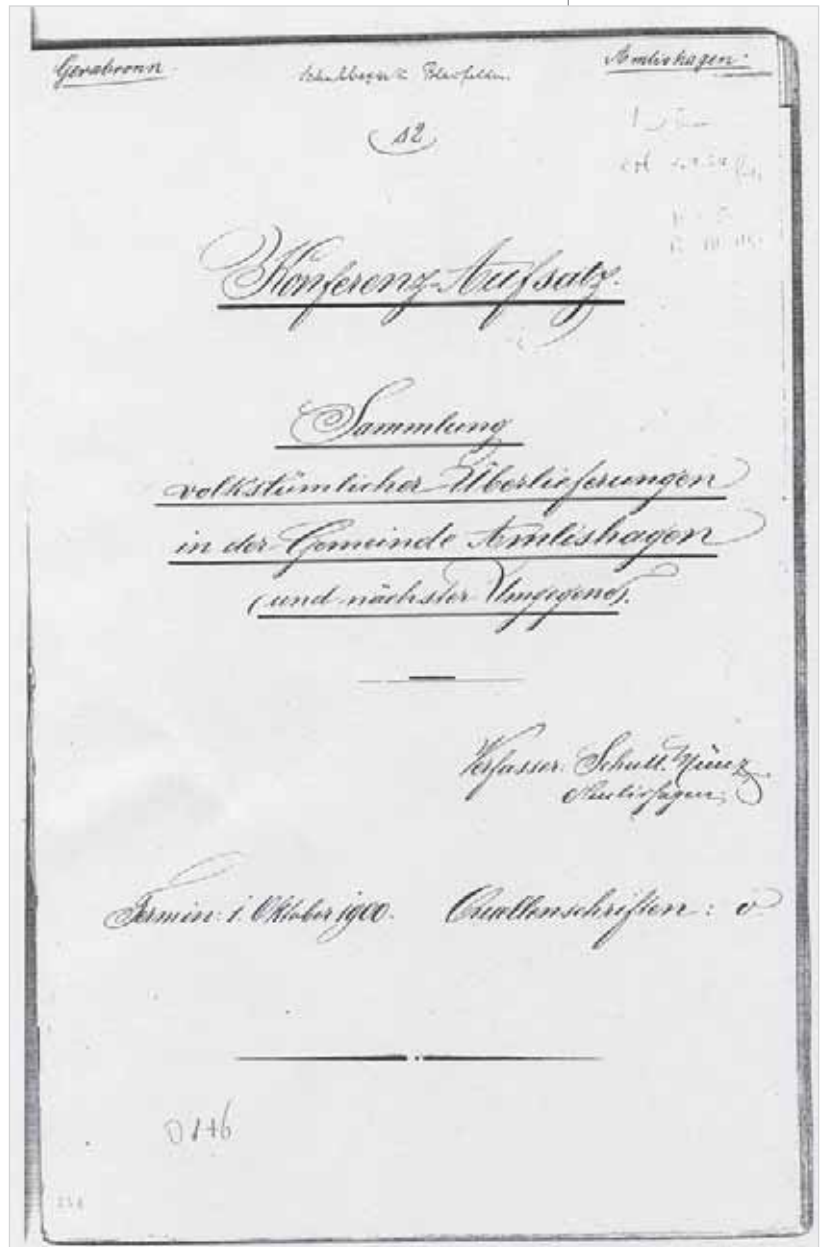 Gerabronn.
Schulbezirk Blaufelden.
Amlishagen.
12
Konferenz-Aufsatz.
Sammlung
volkstümlicher Überlieferungen
in der Gemeinde Amlishagen
(und nächster Umgegend).
Verfasser: Schull. Münz
Amlishagen.
Termin: 1. Oktober 1900.
Quellenschriften: 0